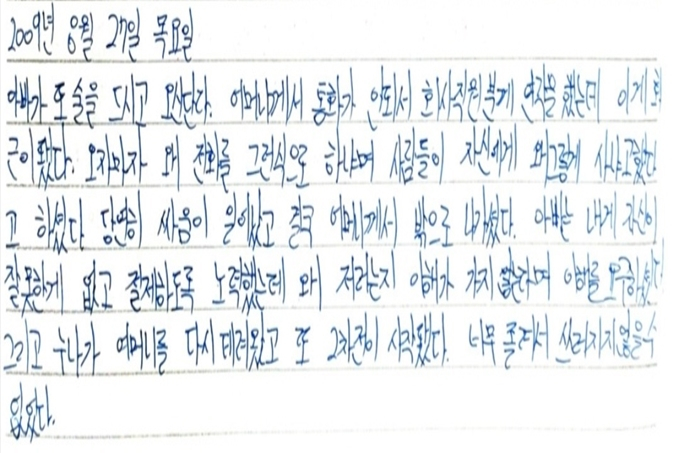 2009년 8월 27일 목요일
아빠가 또 술을 드시고 오신단다. 어머니께서 통화가 안되서 회사직원분께 연락을 했는데 이게 화
근이 됐다. 오자마자 왜 전화를 그런식으로 하냐며 사람들이 자신에게 왜그렇게 사냐고했다
고 하셨다. 당연히 싸움이 일어났고 결국 어머니께서 밖으로 나가셨다. 아빠는 내게 자신이
잘못한게 없고 절제하도록 노력했는데 왜 저러는지 이해가 가지 않는다며 이해를 요구하셨다
그리고 누나가 어머니를 다시 데려왔고 또 2차전이 시작됐다. 너무 졸려서 쓰러지지않을수
없었다.